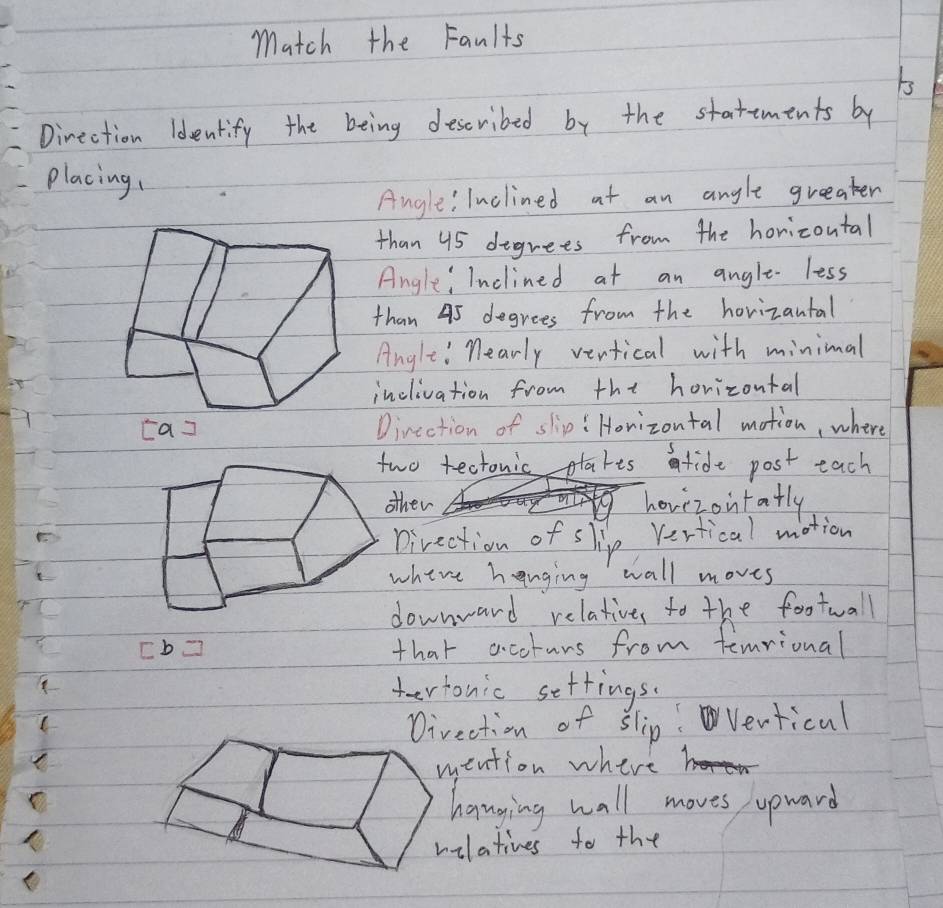 Match the Faults
ts
Direction Identify the being described by the statements by
placing,
Angle: Inclined at an angle greater
than 45 degrees from the horizontal
Angle: Inclined at an angle less
than 45 degrees from the horizantal
Angle: Nearly vertical with minimal
inclination from the horizontal
[a]
Direction of slip: Horizontal motion, where
two tectonic plates stide post each
other horizontatly
Direction of slip Vertical motion
where hanging wall moves
downward relatives to the footwall
[b]
that occturs from temrional
tertonic settings.
Direction of slip: Vertical
mention where
hanging wall moves upward
relatives to the